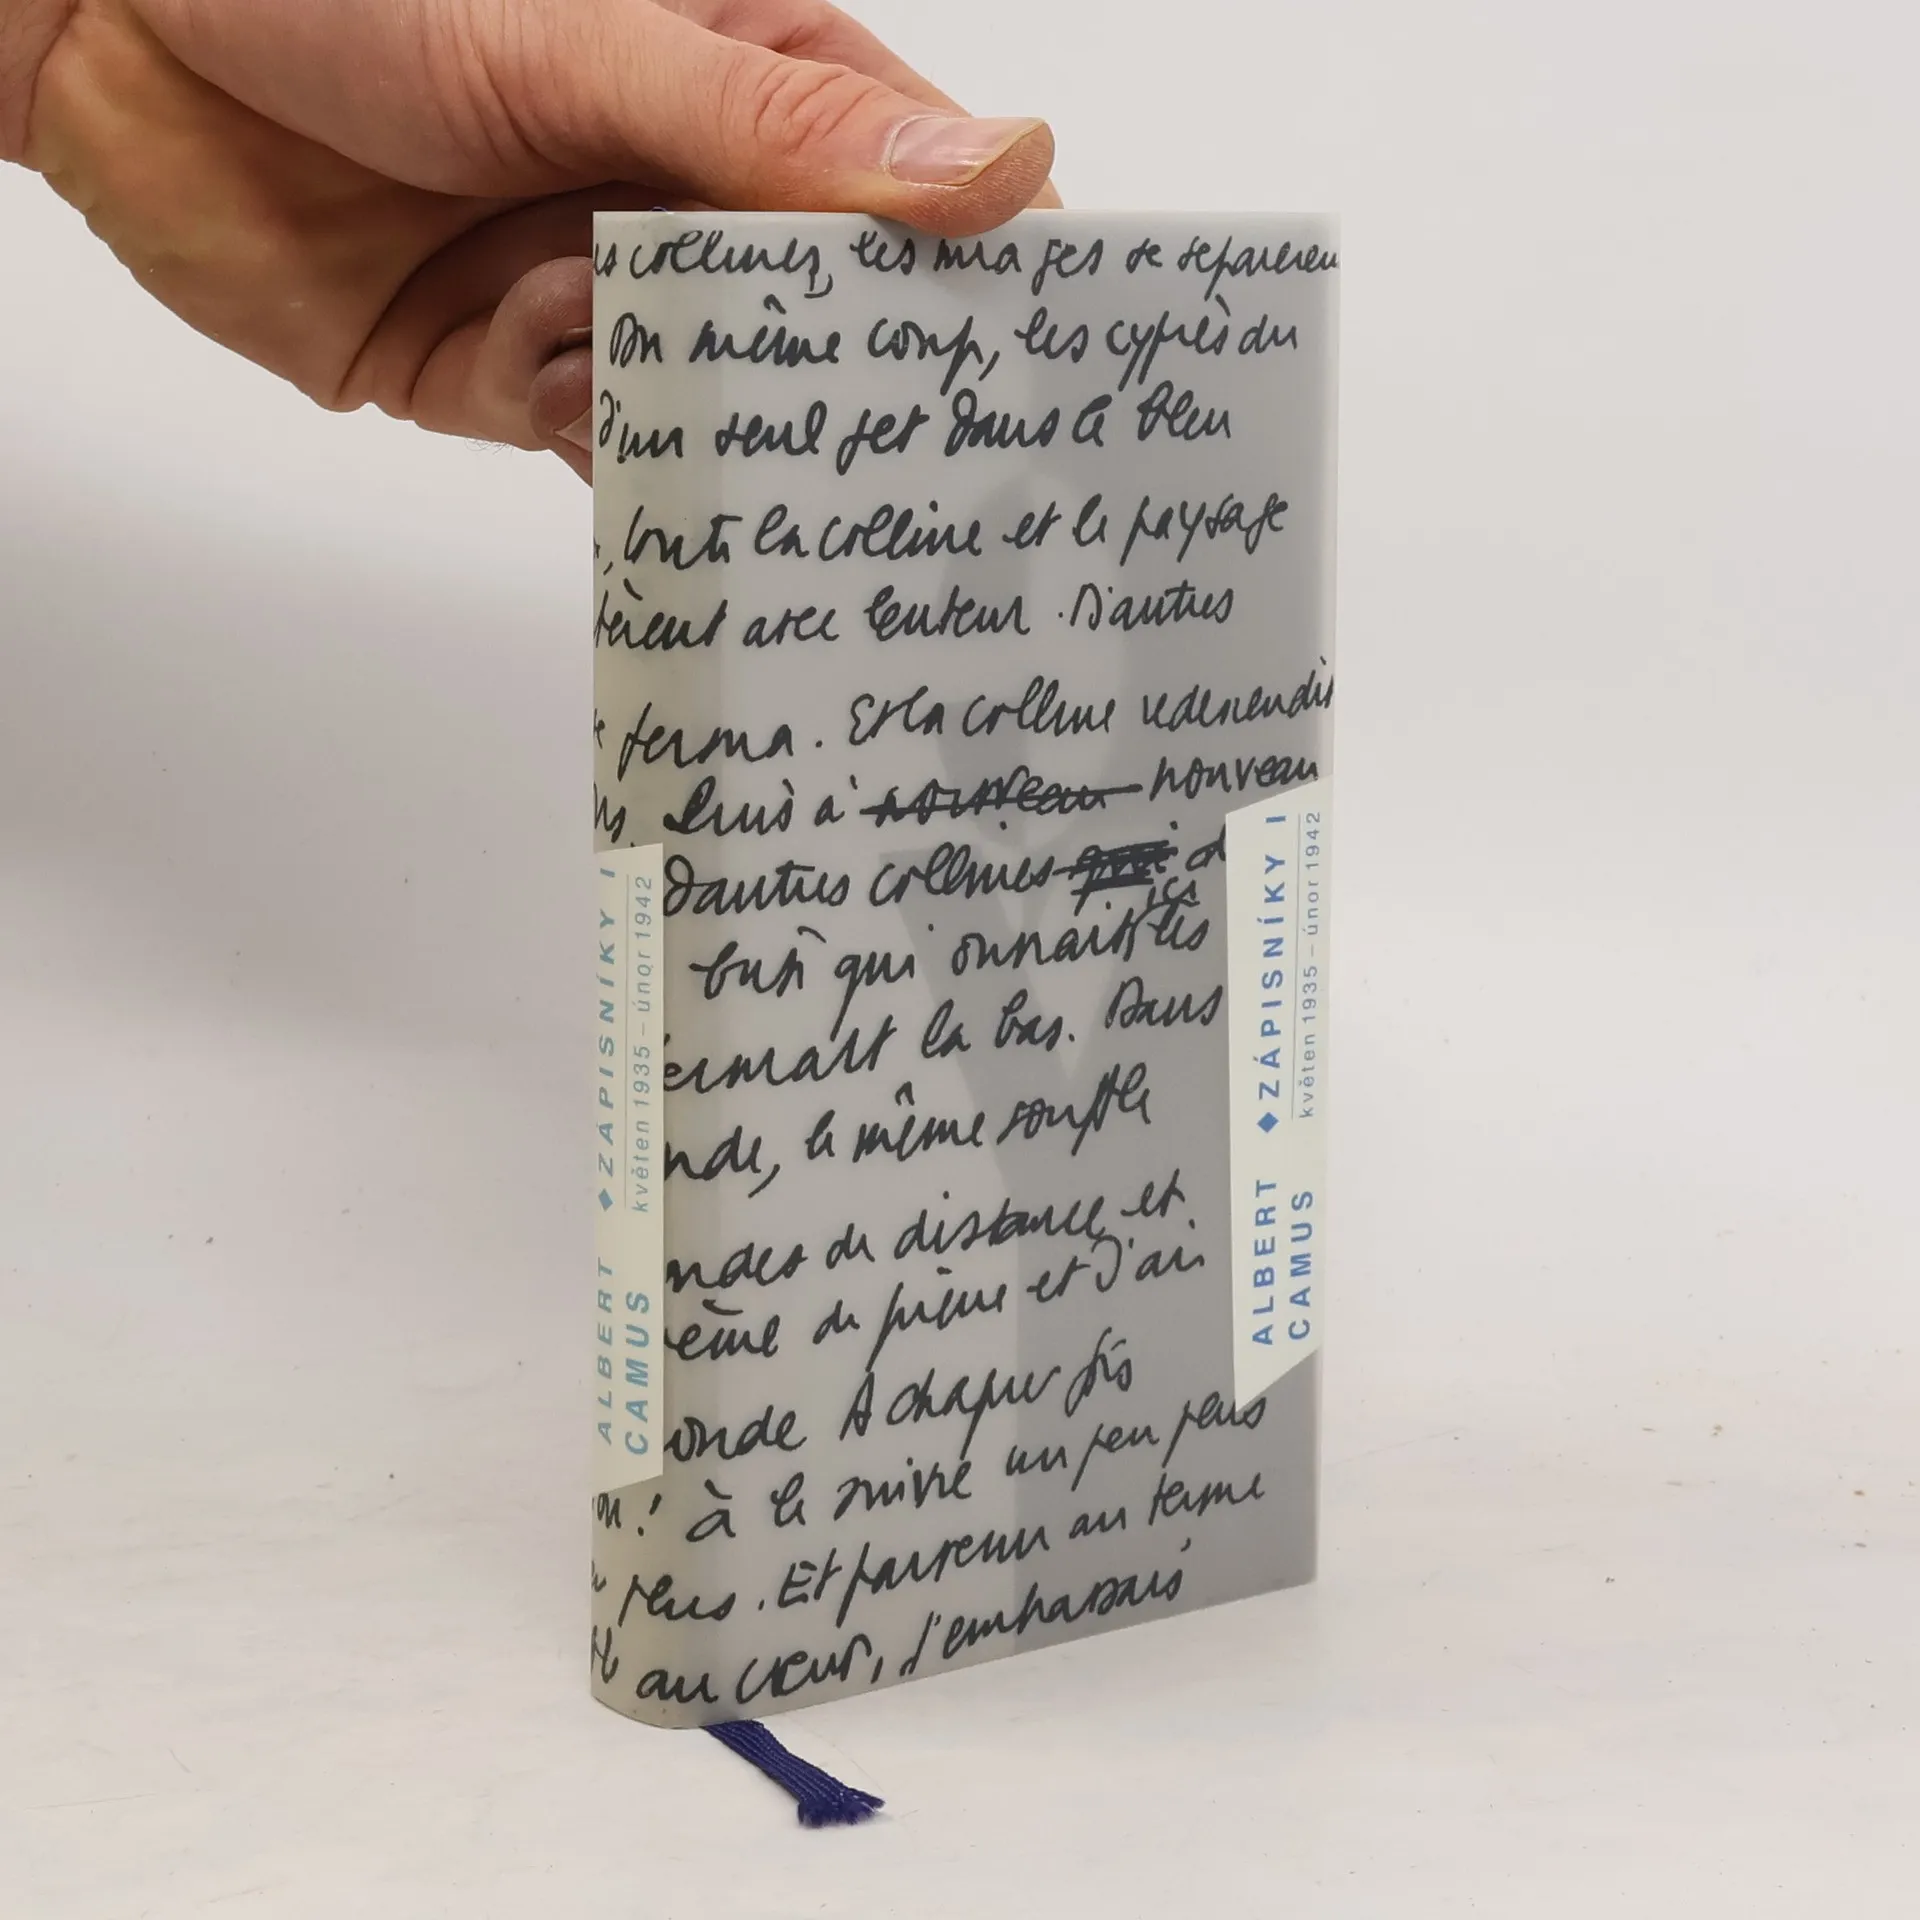 collines, les nuages se separeren
même coup, les cyprès du
d'un seul jet dans le bleu
toute la colline et le paysage
avec lenteur. D'autres
ferma. Et la colline redescendit
Puis à nouveau nouveau
d'autres collines qui
ici
qui les
la bas. Dans
nde, le même souffle
ndes de distance et
de pierre et d'air.
onde A chaque fois
à le suivre un peu plus
on!
plus. Et parvenu au terme
au cœur, j'embrassais
ALBERT CAMUS
◆ZÁPISNÍKY I
květen 1935 – únor 1942
ALBERT CAMUS
◆ZÁPISNÍKY I
květen 1935 – únor 1942